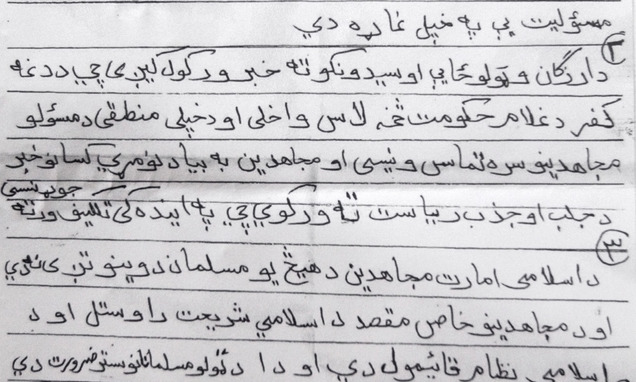 مسؤليت يې په خپل غاړه دي
۲
دارنګان و ټولو ځايي اوسيدونکو ته خبر ورکول کيږي چي ددغه
کفر د غلام حکومت څخه لاس واخلي او دخپلي منطقې د مسؤلو
مجاهدينو سره تماس ونيسي او مجاهدين به بيا د نوموړي کسانو خبر
د جلب او جذب رياست ته ورکوي چي په اينده کي تکليف ورته
جوړ نسي
۳
د اسلامي امارت مجاهدين د هيڅ يو مسلمان د وينو تږي نه دي
او د مجاهدينو خاص مقصد د اسلامي شريعت راوستل او د
اسلامي نظام قائيمول دي او دا د ټولو مسلمانانو ستر ضرورت دي